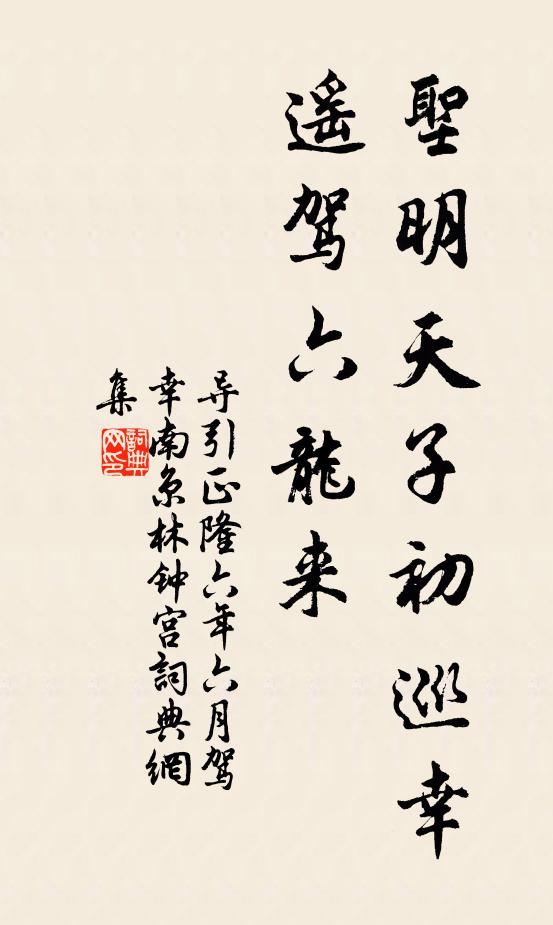 聖明天子初巡幸
遥驾六龍来
导引正隆六年六月驾
幸南京林钟宫詞典網
集
詞典
网印